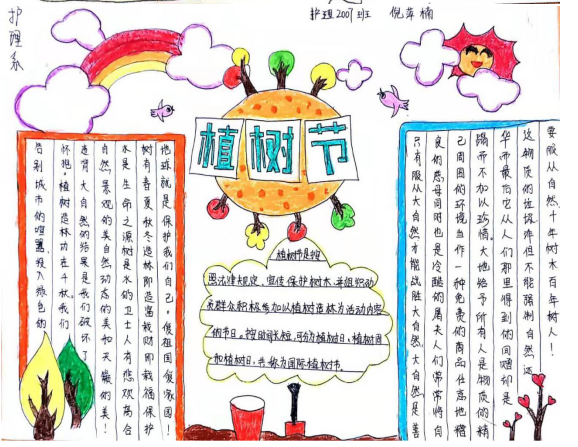 护理系
护理2007班 倪萍楠
植树节
告别城市的喧嚣,投入绿色的
怀抱,植树造林功在千秋。我们
违背大自然的结果是我们破坏了
自然景观的美自然动态的美和天籁的美!
水是生命之源树是水的卫士人有悲欢离合
树有春夏秋冬造林即造富栽财即栽福保护
地球就是保护我们自己,爱祖国爱家园!
植树节是按
照法律规定、宣传保护树木、并组织动
员群众积极参加以植树造林为活动内容
的节日。按时间长短,可分为植树日、植树周
和植树月,共称为国际植树节。
只有服从大自然才能战胜大自然。大自然是善
良的慈母同时也是冷酷的屠夫人们常常将自
己周围的环境当作一种免费的商品任意地糟
蹋而不加以珍惜。大地给予所有人是物质的精
华而最后它从人们那里得到的回赠却是
这物质的垃圾你但不能强制自然还
要服从自然十年树木百年树人!